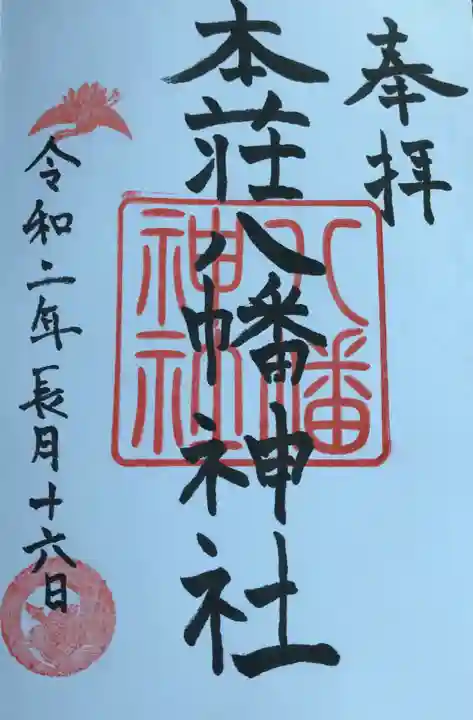 奉拝
本荘八幡神社
八幡
神社
令和二年長月十六日